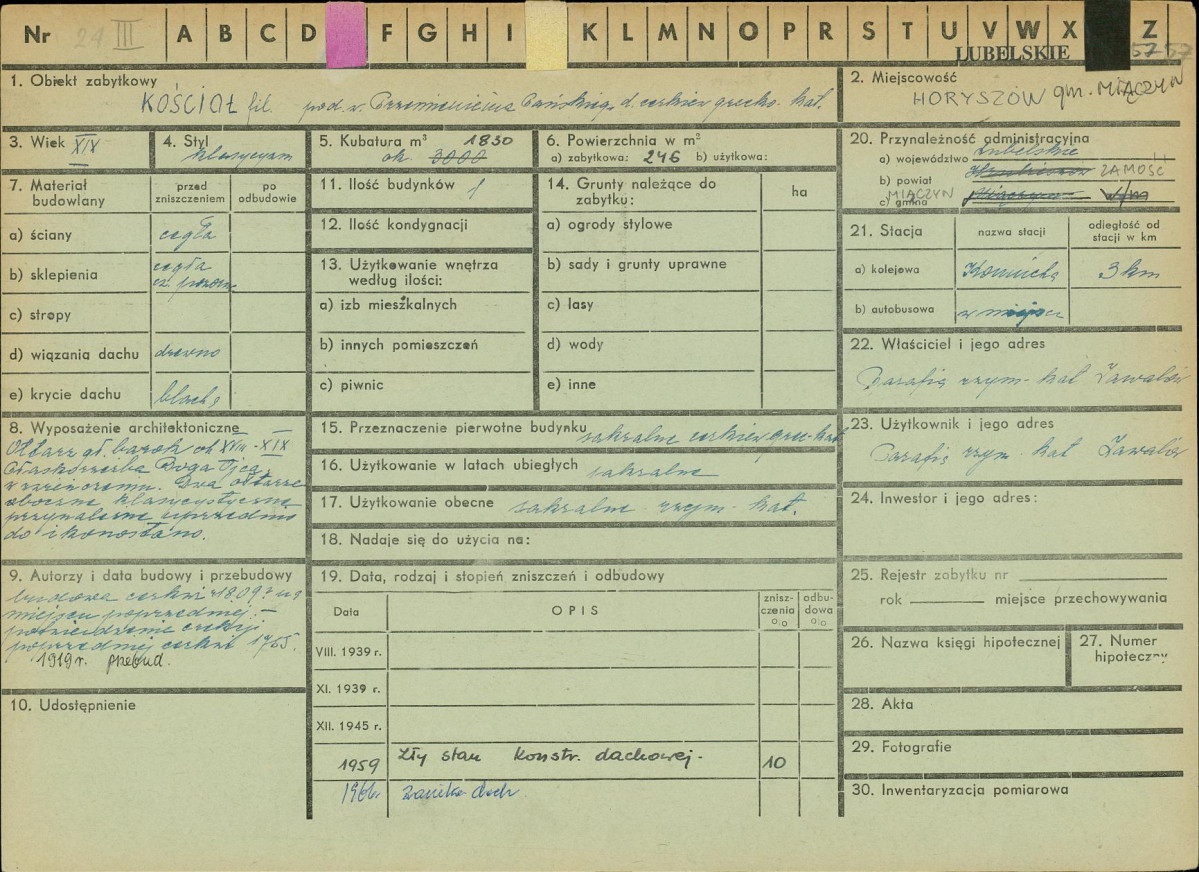 Nr 24 III A B C D F G H I K L M N O P R S T U V W X Z
LUBELSKIE 57
1. Obiekt zabytkowy
KOŚCIÓŁ fil. pod w. Przemienienia Pańskiego d. cerkiew grecko. kat.
2. Miejscowość
HORYSZÓW gm. MIĄCZYN
3. Wiek XIX
4. Styl
klasycyzm
5. Kubatura m³ 1830
ok. 3000
6. Powierzchnia w m²
a) zabytkowa: 246 b) użytkowa:
20. Przynależność administracyjna
a) województwo Lubelskie
b) powiat ZAMOŚĆ
c) gmina MIĄCZYN
w/m
7. Materiał budowlany
przed zniszczeniem
po odbudowie
a) ściany cegła
b) sklepienia cegła
cz. pozorne
c) stropy
d) wiązania dachu drewno
e) krycie dachu blacha
11. Ilość budynków 1
12. Ilość kondygnacji
13. Użytkowanie wnętrza
według ilości:
a) izb mieszkalnych
b) innych pomieszczeń
c) piwnic
14. Grunty należące do
zabytku:
ha
a) ogrody stylowe
b) sady i grunty uprawne
c) lasy
d) wody
e) inne
21. Stacja
nazwa stacji
odległość od
stacji w km
a) kolejowa 3 km
b) autobusowa w miejscu
22. Właściciel i jego adres
Parafia rzym- kat Zawalów
8. Wyposażenie architektoniczne
Ołtarz gł. barok ok XVIII-XIX
Płaskorzeźba Boga Ojca
w zwieńczeniu. Dwa ołtarze
boczne klasycystyczne
przynależne uprzednio
do ikonostasu.
15. Przeznaczenie pierwotne budynku sakralne cerkiew grec-kat
16. Użytkowanie w latach ubiegłych sakralne
17. Użytkowanie obecne sakralne rzym- kat.
18. Nadaje się do użycia na:
23. Użytkownik i jego adres
Parafia rzym- kat Zawalów
24. Inwestor i jego adres:
9. Autorzy i data budowy i przebudowy
budowa cerkwi 1809? na
miejscu poprzedniej -
potwierdzenie erekcji
poprzedniej cerkwi
1919 r. przebud.
10. Udostępnienie
19. Data, rodzaj i stopień zniszczeń i odbudowy
Data
OPIS
znisz-
czenia
o/o
odbu-
dowa
o/o
VIII. 1939 r.
XI. 1939 r.
XII. 1945 r.
1959 Zły stan konstr. dachowej. 10
1966
25. Rejestr zabytku nr
rok miejsce przechowywania
26. Nazwa księgi hipotecznej
27. Numer
hipoteczny
28. Akta
29. Fotografie
30. Inwentaryzacja pomiarowa